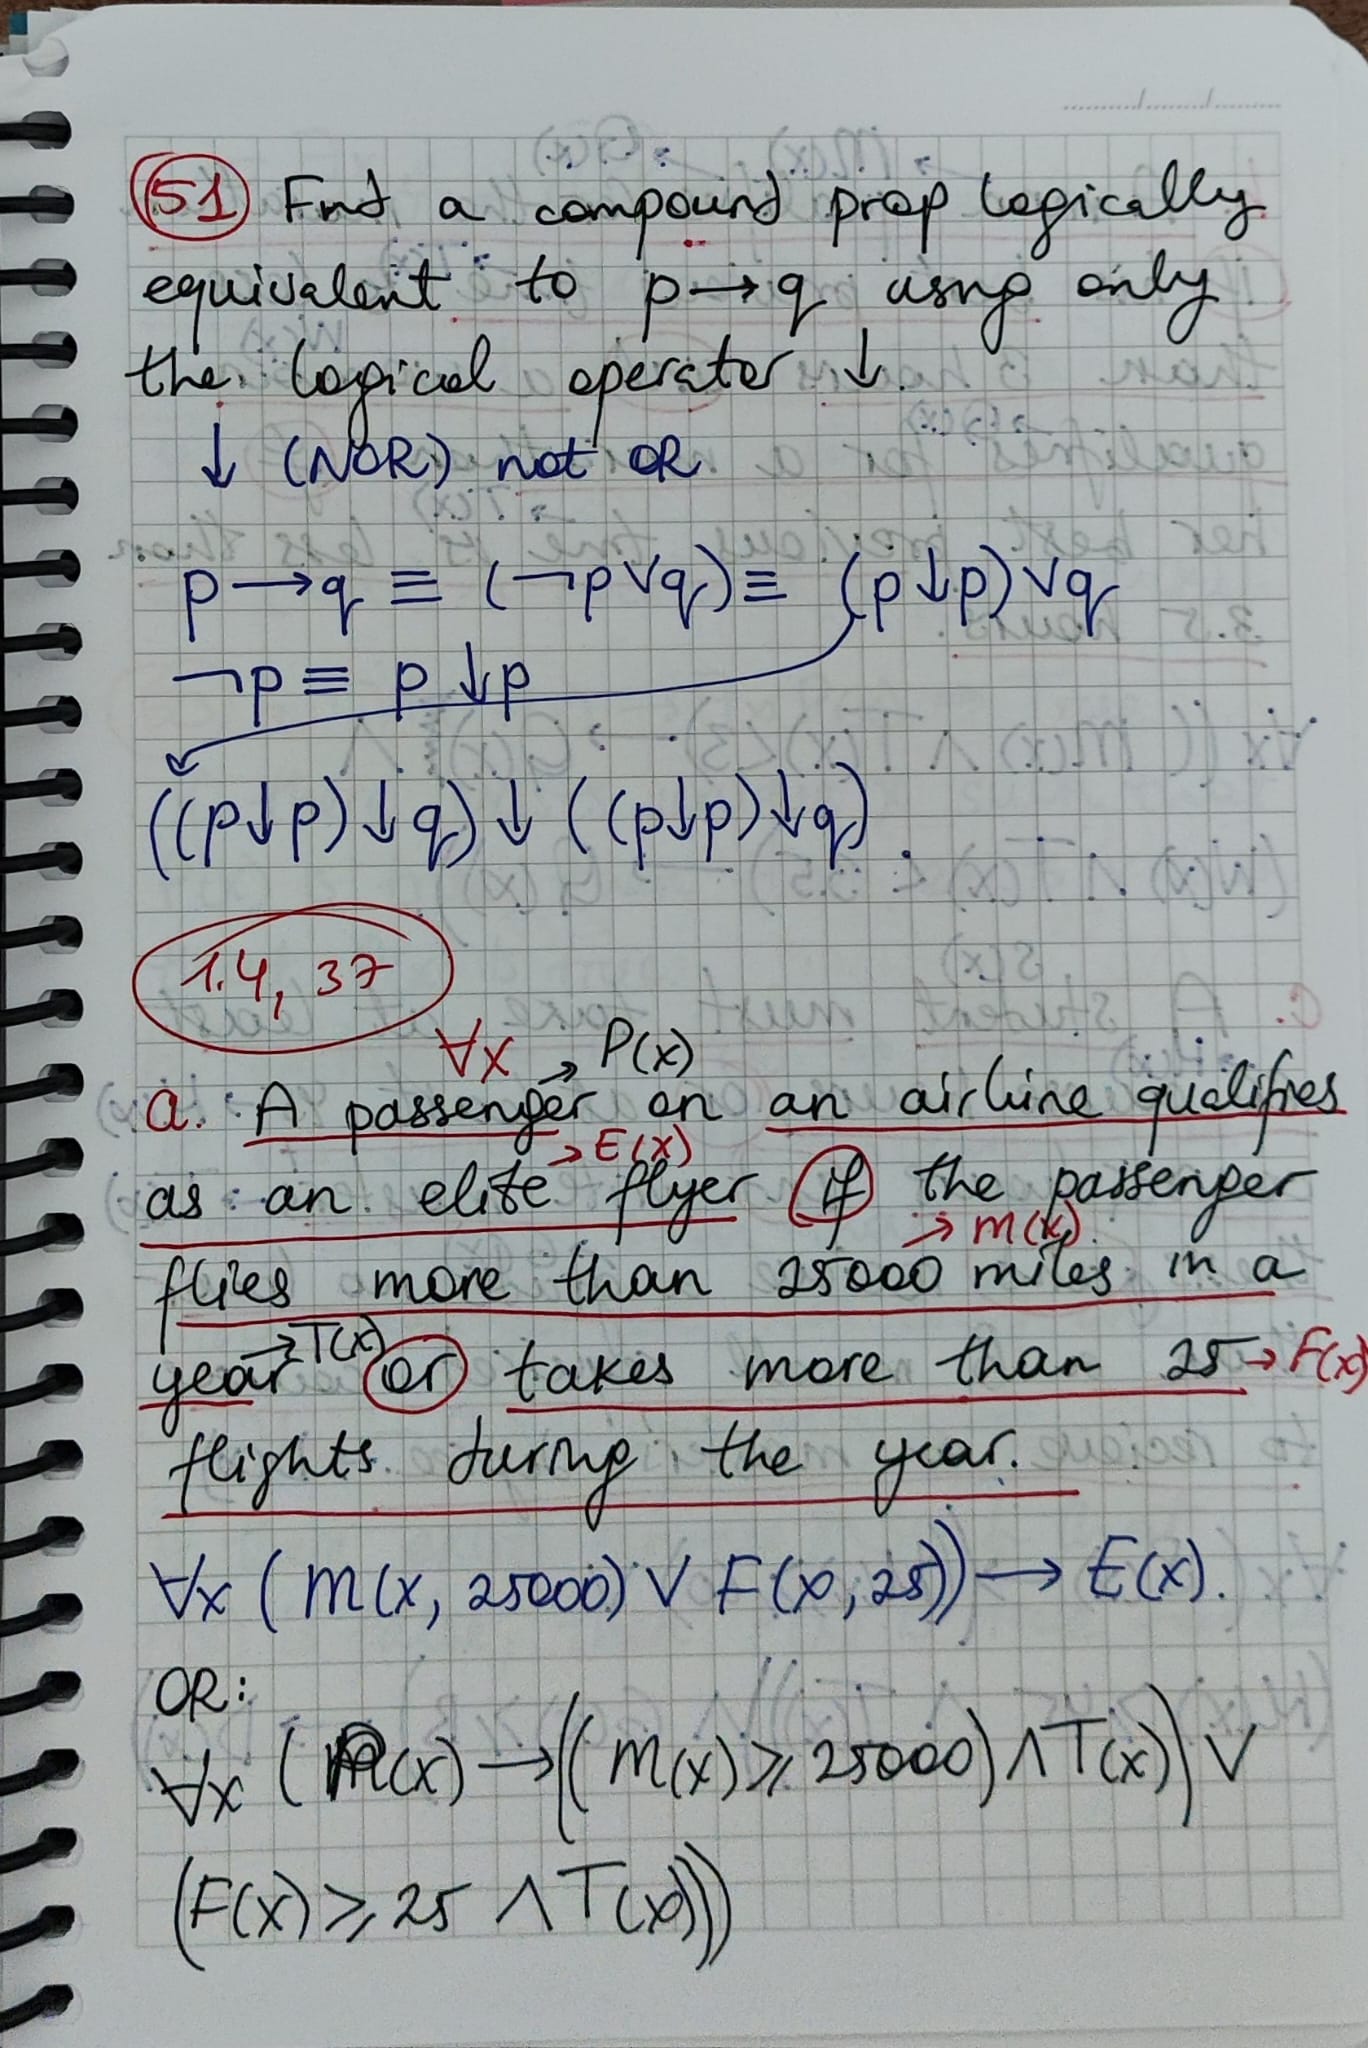 51 Find a compound prop logically
equivalent to p→q using only
the logical operator ↓.
↓ (NOR) not OR
p→q ≡ (¬p∨q) ≡ (p↓p)∨q
¬p ≡ p↓p
((p↓p)↓q)↓((p↓p)↓q).
1.4, 37
∀x → P(x)
a. A passenger on an airline qualifies
→ E(x)
as an elite flyer if the passenger
→ m(x)
flies more than 25000 miles in a
→ T(x)
year or takes more than 25 → F(x)
flights during the year.
∀x (m(x, 25000) ∨ F(x, 25)) → E(x).
OR:
∀x ( (x) → ((m(x) ⩾ 25000) ∧ T(x)) ∨
(F(x) ⩾ 25 ∧ T(x)))